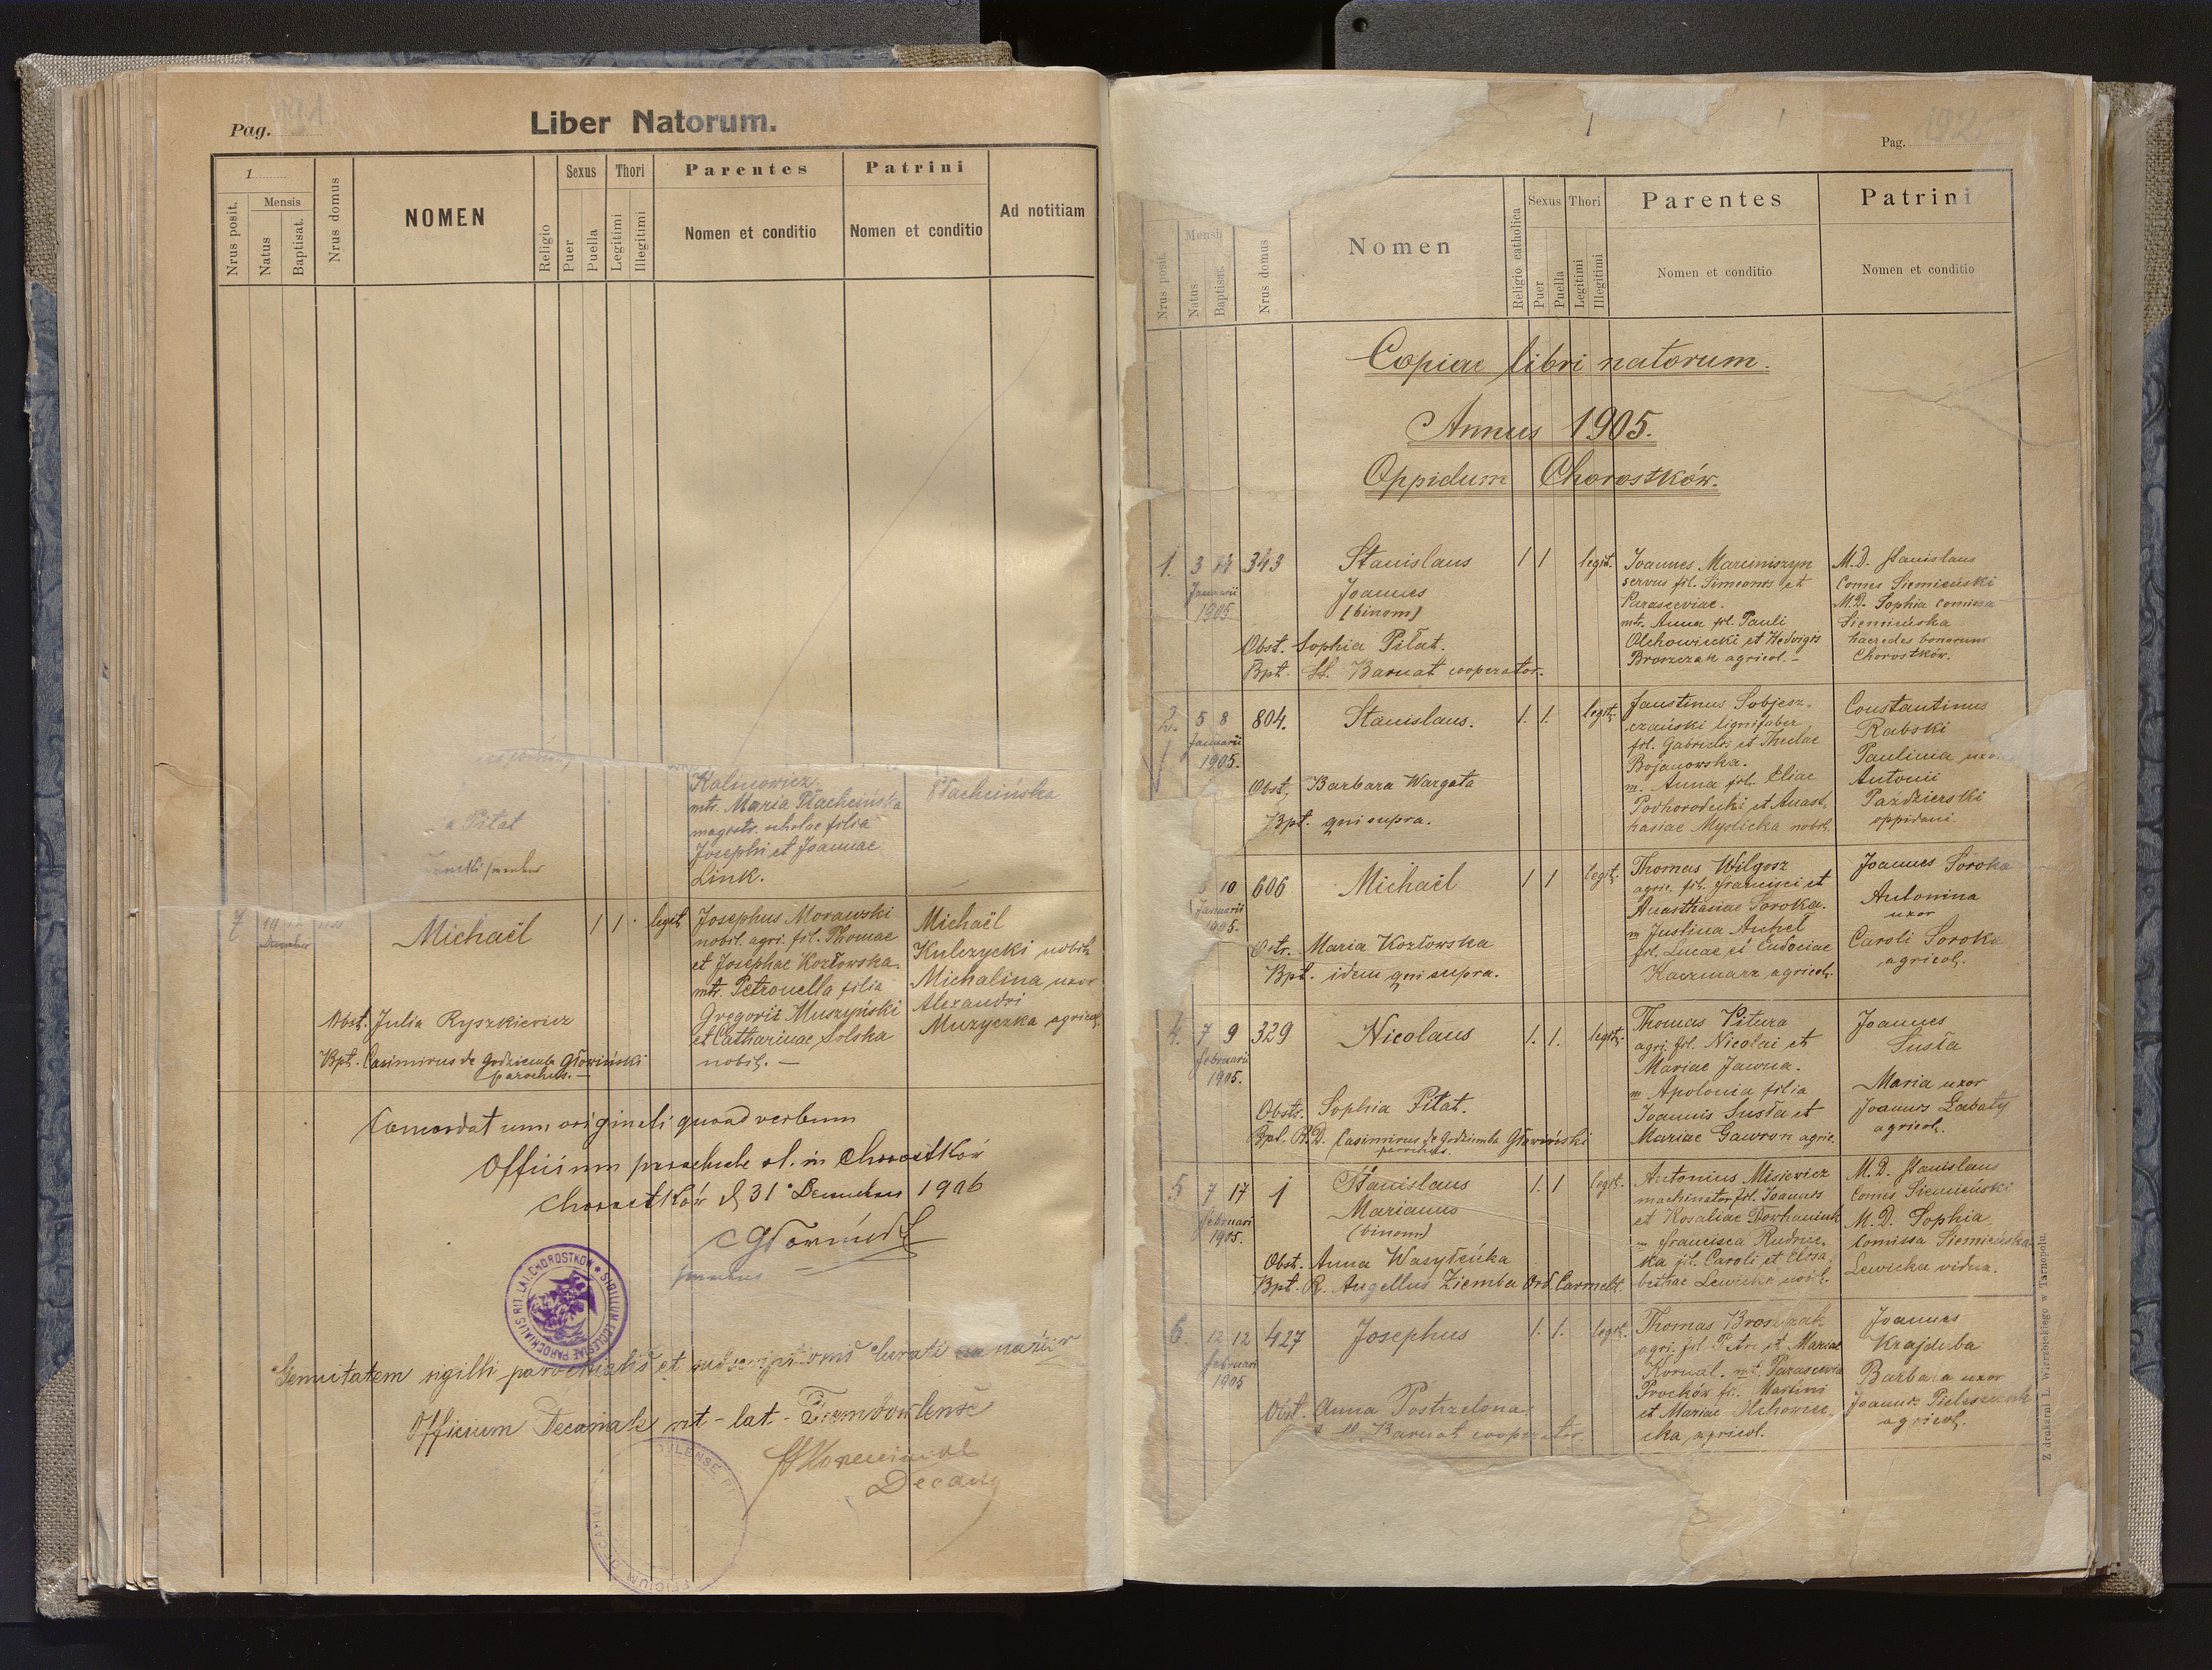 Pag.
Liber Natorum.
1
Mensis
Nrus posit.
Natus
Baptisat.
Nrus domus
NOMEN
Religio
Sexus
Puer
Puella
Thori
Legitimi
Illegitimi
Parentes
Nomen et conditio
Patrini
Nomen et conditio
Ad notitiam
Pitat
Kalinowicz.
mtr. Maria Płachcińska
magistr. scholae filia
Josephi et Joannae
Link.
Płachcińska
7
19
December
Michaël
1 1 legit
Josephus Morawski
nobil. agri. fil. Thomae
et Josephae Kozłowska.
mtr. Petronella filia
Gregorii Muszyński
et Catharinae Solska
nobil. —
Michaël
Kulczycki nobil.
Michalina uxor
Alexandri
Muzyczka agricol.
Obst. Julia Ryszkiewicz
Bpt. Casimirus de Godziemba Głowiński
parochus. —
Concordat cum originali quoad verbum
Officium parochiale r. l. in Chorostków
Chorostków d 31 Decembris 1906
SIGILLUM ECCLESIAE PAROCHIALIS RIT. LAT. CHOROSTKOW
sigilli parochialis et
Officium Decanale rit - lat -
Decan
Pag. 192
Mensis
Nrus posit.
Natus
Baptisat.
Nrus domus
Nomen
Religio catholica
Sexus
Puer
Puella
Thori
Legitimi
Illegitimi
Parentes
Nomen et conditio
Patrini
Nomen et conditio
Copiae libri natorum.
Annus 1905.
Oppidum Chorostków.
1. 3 14 343
Januarii
1905
Stanislaus
Joannes
(binom)
1 1 legit.
Joannes Marciniszyn
servus fil. Simeonis et
Parasceviae.
mtr. Anna fil. Pauli
Olchowiecki et Hedvigis
Broszczak agricol. —
M.D. Stanislaus
Comes Siemieński
M.D. Sophia comissa
Siemieńska
haeredes bonorum
Chorostków.
Obst. Sophia Piłat.
Bpt. St. Barnat cooperator.
2. 5 8 804.
Januarii
1905.
Stanislaus.
1. 1. legit.
Faustinus Sobjesz-
czański lignifaber,
fil. Gabrielis et Theclae
Bojanowska.
m. Anna fil. Eliae
Podhorodecki et Anast-
hasiae Myslicka nobil.
Constantinus
Rabski
Paulinia uxor
Antonii
Paździerski
oppidani.
Obst. Barbara Wargata
Bpt. qui supra.
10 606
Januarii
1905.
Michaël
1 1 legit.
Thomas Wilgosz
agric. fil. Francisci et
Anasthasiae Soroka.
m Justina
fil. Lucae et Eudociae
Kaczmarz agricol.
Joannes Soroka
Antonina
uxor
Caroli Soroka
agricol.
Obstr. Maria Kozłowska
Bpt. idem qui supra.
4. 7 9 329
Februarii
1905.
Nicolaus
1. 1. legit.
Thomas Pitura
agri. fil. Nicolai et
Mariae Jawna.
m Apolonia filia
Joannis Susła et
Mariae Gawron agric.
Joannes
Susła
Maria uxor
Joannis Łabaty
agricol.
Obstr. Sophia Piłat.
Bpt. R.D. Casimirus de Godziemba Głowiński
parochus.
5 7 17 1
Februari
1905.
Stanislaus
Marianus
(binom)
1. 1 legit.
Antonius Misiewicz
machinator fil. Joannis
et Rosaliae Dowhaniuk
m Francisca Rudnic-
ka fil. Caroli et Elisa-
bethae Lewicka nobil.
M.D. Stanislaus
Comes Siemieński
M.D. Sophia
Comissa Siemieńska
Lewicka vidua.
Obst. Anna Wasyleńka
Bpt. R. Angellus Ziemba Ord. Carmelit.
6. 12 12 427
Februari
1905
Josephus
1. 1. legit.
Thomas Broszczak
agri. fil Petri et Mariae
Kornal. mt. Parascevia
Proćków fil. Martini
et Mariae Olchowiec-
cka agricol.
Joannes
Krajduba
Barbara uxor
Joannis
agricol.
Obst. Anna Postrzelona
St. Barnat cooperator.
Z drukarni L. Wierzbickiego w Tarnopolu.